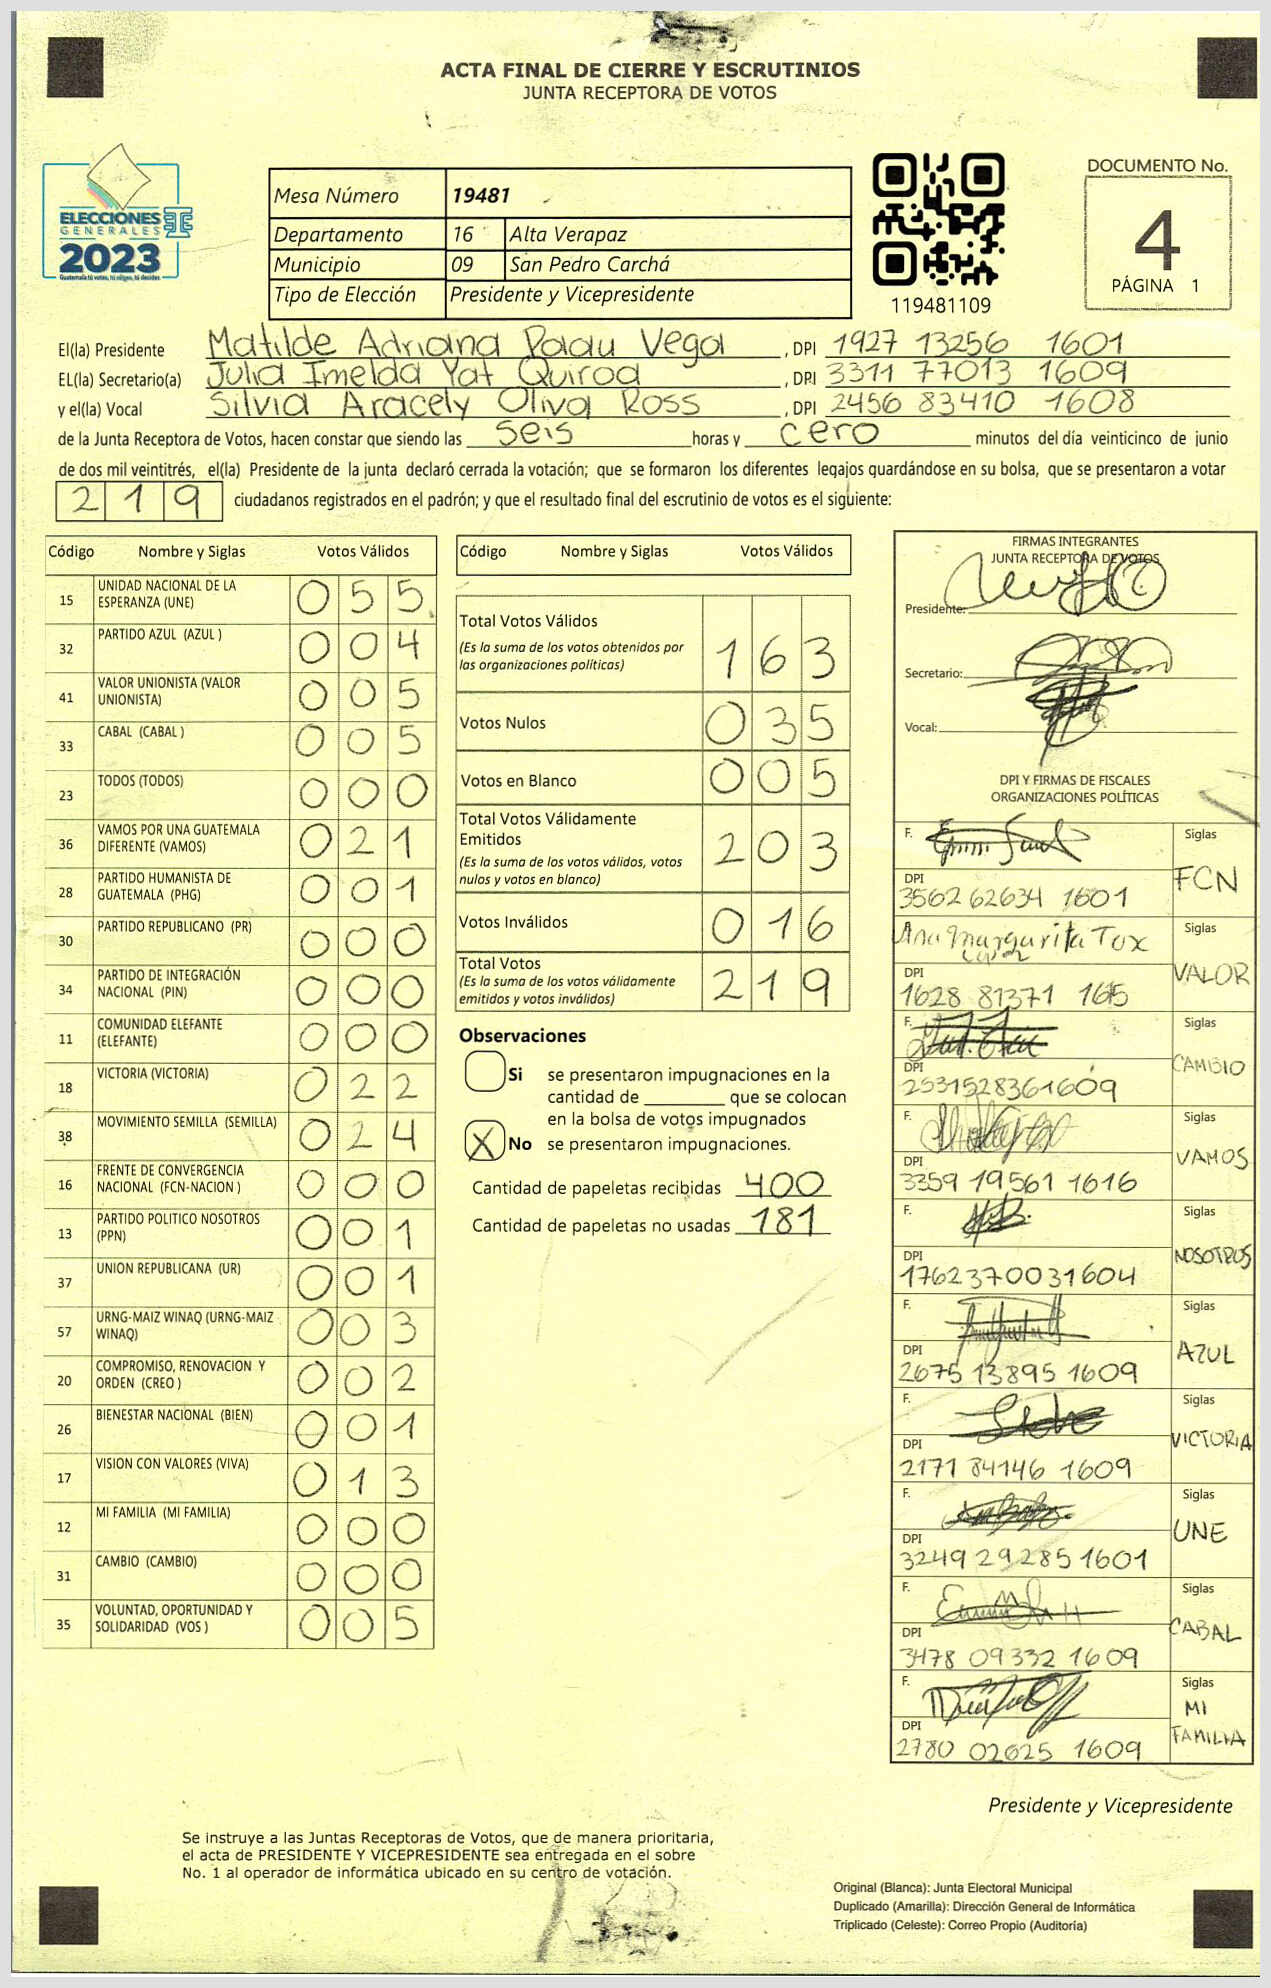 ACTA FINAL DE CIERRE Y ESCRUTINIOS
JUNTA RECEPTORA DE VOTOS
ELECCIONES
GENERALES
2023
Guatemala tú votas, tú eliges, tú decides
Mesa Número 19481
Departamento 16 Alta Verapaz
Municipio 09 San Pedro Carchá
Tipo de Elección Presidente y Vicepresidente
119481109
DOCUMENTO No.
4
PÁGINA 1
El(la) Presidente Matilde Adriana Paau Vega , DPI 1927 13256 1601
EL(la) Secretario(a) Julia Imelda Yat Quiroa , DPI 3311 77013 1609
y el(la) Vocal Silvia Aracely Oliva Ross , DPI 2456 83410 1608
de la Junta Receptora de Votos, hacen constar que siendo las seis horas y cero minutos del día veinticinco de junio
de dos mil veintitrés, el(la) Presidente de la junta declaró cerrada la votación; que se formaron los diferentes legajos guardándose en su bolsa, que se presentaron a votar
219 ciudadanos registrados en el padrón; y que el resultado final del escrutinio de votos es el siguiente:
Código Nombre y Siglas Votos Válidos
15 UNIDAD NACIONAL DE LA ESPERANZA (UNE) 055
32 PARTIDO AZUL (AZUL ) 004
41 VALOR UNIONISTA (VALOR UNIONISTA) 005
33 CABAL (CABAL ) 005
23 TODOS (TODOS) 000
36 VAMOS POR UNA GUATEMALA DIFERENTE (VAMOS) 021
28 PARTIDO HUMANISTA DE GUATEMALA (PHG) 001
30 PARTIDO REPUBLICANO (PR) 000
34 PARTIDO DE INTEGRACIÓN NACIONAL (PIN) 000
11 COMUNIDAD ELEFANTE (ELEFANTE) 000
18 VICTORIA (VICTORIA) 022
38 MOVIMIENTO SEMILLA (SEMILLA) 024
16 FRENTE DE CONVERGENCIA NACIONAL (FCN-NACION ) 000
13 PARTIDO POLITICO NOSOTROS (PPN) 001
37 UNION REPUBLICANA (UR) 001
57 URNG-MAIZ WINAQ (URNG-MAIZ WINAQ) 003
20 COMPROMISO, RENOVACION Y ORDEN (CREO ) 002
26 BIENESTAR NACIONAL (BIEN) 001
17 VISION CON VALORES (VIVA) 013
12 MI FAMILIA (MI FAMILIA) 000
31 CAMBIO (CAMBIO) 000
35 VOLUNTAD, OPORTUNIDAD Y SOLIDARIDAD (VOS ) 005
Código Nombre y Siglas Votos Válidos
Total Votos Válidos
(Es la suma de los votos obtenidos por
las organizaciones políticas) 163
Votos Nulos 035
Votos en Blanco 005
Total Votos Válidamente
Emitidos
(Es la suma de los votos válidos, votos
nulos y votos en blanco) 203
Votos Inválidos 016
Total Votos
(Es la suma de los votos válidamente
emitidos y votos inválidos) 219
Observaciones
Si se presentaron impugnaciones en la
cantidad de ________ que se colocan
en la bolsa de votos impugnados
X No se presentaron impugnaciones.
Cantidad de papeletas recibidas 400
Cantidad de papeletas no usadas 181
FIRMAS INTEGRANTES
JUNTA RECEPTORA DE VOTOS
Presidente:
Secretario:
Vocal:
DPI Y FIRMAS DE FISCALES
ORGANIZACIONES POLÍTICAS
F. Siglas
DPI FCN
3562 62634 1601
Ana Margarita Tox Siglas
DPI VALOR
1628 81371
F. Siglas
DPI CAMBIO
2531528361609
F. Siglas
DPI VAMOS
3359 19561 1616
F. Siglas
DPI NOSOTROS
1762370031604
F. Siglas
DPI AZUL
2675 13895 1609
F. Siglas
DPI VICTORIA
2171 84146 1609
F. Siglas
DPI UNE
3249 29285 1601
F. Siglas
DPI CABAL
3478 09332 1609
F. Siglas
DPI MI FAMILIA
2780 02625 1609
Presidente y Vicepresidente
Se instruye a las Juntas Receptoras de Votos, que de manera prioritaria,
el acta de PRESIDENTE Y VICEPRESIDENTE sea entregada en el sobre
No. 1 al operador de informática ubicado en su centro de votación.
Original (Blanca): Junta Electoral Municipal
Duplicado (Amarilla): Dirección General de Informática
Triplicado (Celeste): Correo Propio (Auditoría)